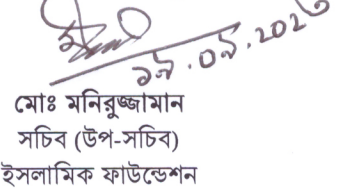 ১৯.০৯.২০২৩
মোঃ মনিরুজ্জামান
সচিব (উপ-সচিব)
ইসলামিক ফাউন্ডেশন